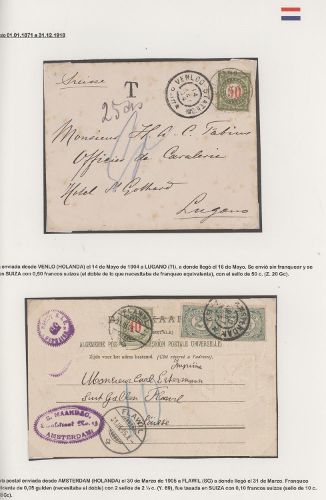 01.01.1871 a 31.12.1910
Suisse
T
VENLO
50
25 cts
Monsieur H. A. C. Fabius
Officier de Cavalerie
Hotel St Gothard
Lugano
enviada desde VENLO (HOLANDA) el 14 de Mayo de 1904 a LUGANO (TI), a donde llegó el 16 de Mayo. Se envió sin franquear y se
en SUIZA con 0,50 francos suizos (el doble de lo que necesitaba de franqueo equivalente), con el sello de 50 c. (Z. 20 Gc).
10
KAART
UNION POSTALE UNIVERSELLE
Zijde voor het adres bestemd.
(Côté réservé à l'adresse)
Imprimé
Monsieur Carl Ackermann
Sankt Gallen Flawil
Suisse
S. MAANDAG,
AMSTERDAM
FLAWIL
postal enviada desde AMSTERDAM (HOLANDA) el 30 de Marzo de 1905 a FLAWIL (SG) a donde llegó el 31 de Marzo. Franqueo
de 0,05 gulden (necesitaba el doble) con 2 sellos de 2 ½ c. (Y. 69), fue tasada en SUIZA con 0,10 francos suizos (sello de 10 c.